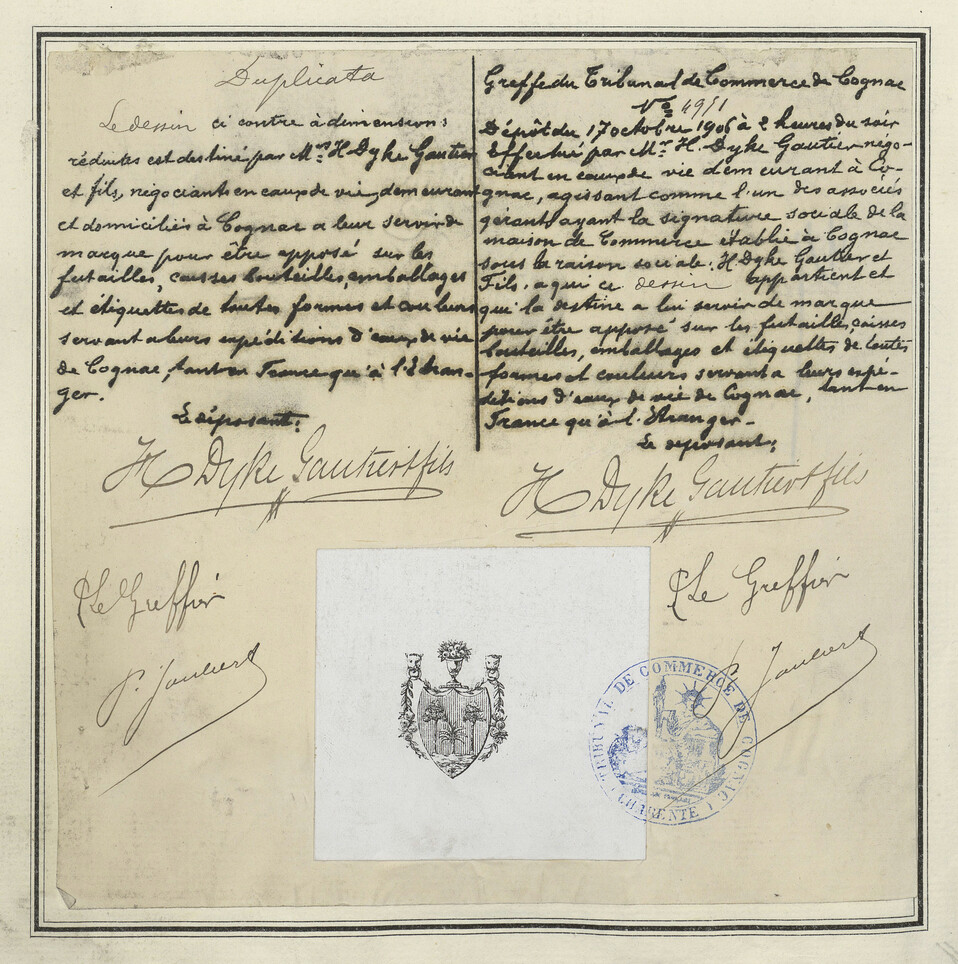 Duplicata
Le dessin ci contre à dimensions
réduites est destiné par Mrs H. Dyke Gautier
et fils, négociants en eaux de vie, demeurant
et domiciliés à Cognac a leur servir de
marque pour être apposé sur les
futailles, caisses bouteilles, emballages
et étiquettes de toutes formes et couleurs
servant a leurs expéditions d'eaux de vie
de Cognac, tant en France qu'à l'Etran-
ger.
Le déposant:
H Dyke Gautier & fils
Le Greffier
P. Joubert
Greffe du Tribunal de Commerce de Cognac
No 4951
Dépôt du 17 octobre 1906 à 2 heures du soir
Effectué par Mr. H. Dyke Gautier négo-
ciant en eaux de vie demeurant à Co-
gnac, agissant comme l'un des associés
gérants ayant la signature sociale de la
maison de Commerce établie à Cognac
sous la raison sociale: H. Dyke Gautier et
Fils. a qui ce dessin appartient et
qui la destine a lui servir de marque
pour être apposé sur les futailles, caisses
bouteilles, emballages et étiquettes de toutes
formes et couleurs servant a leurs expé-
ditions d'eaux de vie de Cognac, tant en
France qu'à l'Etranger.
Le deposant:
H Dyke Gautier & fils
Le Greffier
P. Joubert
TRIBUNAL DE COMMERCE DE COGNAC
(CHARENTE)